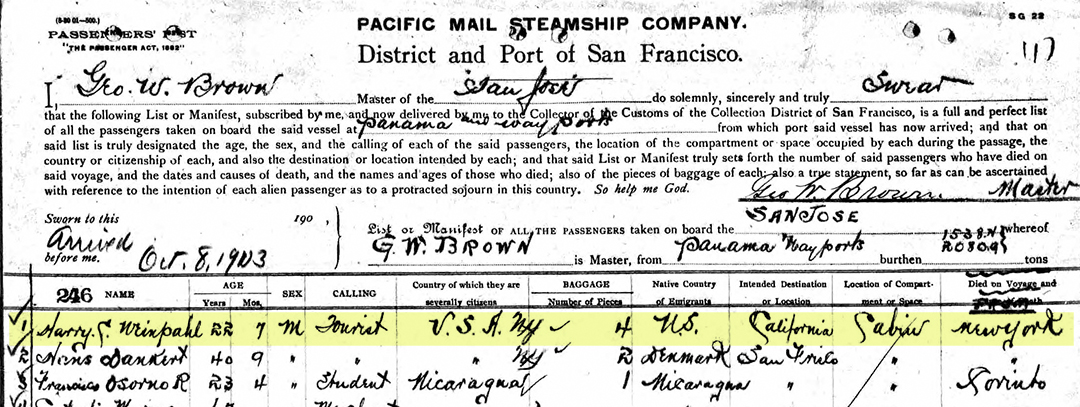 (8-20 01—500.)
PASSENGERS' LIST
"THE PASSENGER ACT, 1882"
PACIFIC MAIL STEAMSHIP COMPANY.
SG 22
District and Port of San Francisco.
I, Geo. W. Brown Master of the San José do solemnly, sincerely and truly Swear
that the following List or Manifest, subscribed by me, and now delivered by me to the Collector of the Customs of the Collection District of San Francisco, is a full and perfect list
of all the passengers taken on board the said vessel at Panama and way ports from which port said vessel has now arrived; and that on
said list is truly designated the age, the sex, and the calling of each of the said passengers, the location of the compartment or space occupied by each during the passage, the
country or citizenship of each, and also the destination or location intended by each; and that said List or Manifest truly sets forth the number of said passengers who have died on
said voyage, and the dates and causes of death, and the names and ages of those who died; also of the pieces of baggage of each; also a true statement, so far as can be ascertained
with reference to the intention of each alien passenger as to a protracted sojourn in this country. So help me God. Geo W Brown Master
Sworn to this 190
Arrived
before me. Oct. 8, 1903
List or Manifest OF ALL THE PASSENGERS taken on board the SAN JOSE whereof
G. W. BROWN is Master, from Panama Way ports burthen tons
246 NAME AGE Years Mos. SEX CALLING Country of which they are severally citizens BAGGAGE Number of Pieces Native Country of Emigrants Intended Destination or Location Location of Compartment or Space Died on Voyage and
1 Harry G. Weinpahl 22 7 M Tourist U.S.A. NY 4 U.S. California Cabin New York
2 Hans Dankert 40 9 " " " NY 2 Denmark San Frisco " "
3 Francisco Osorno R 23 4 " Student Nicaragua 1 Nicaragua " " Corinto